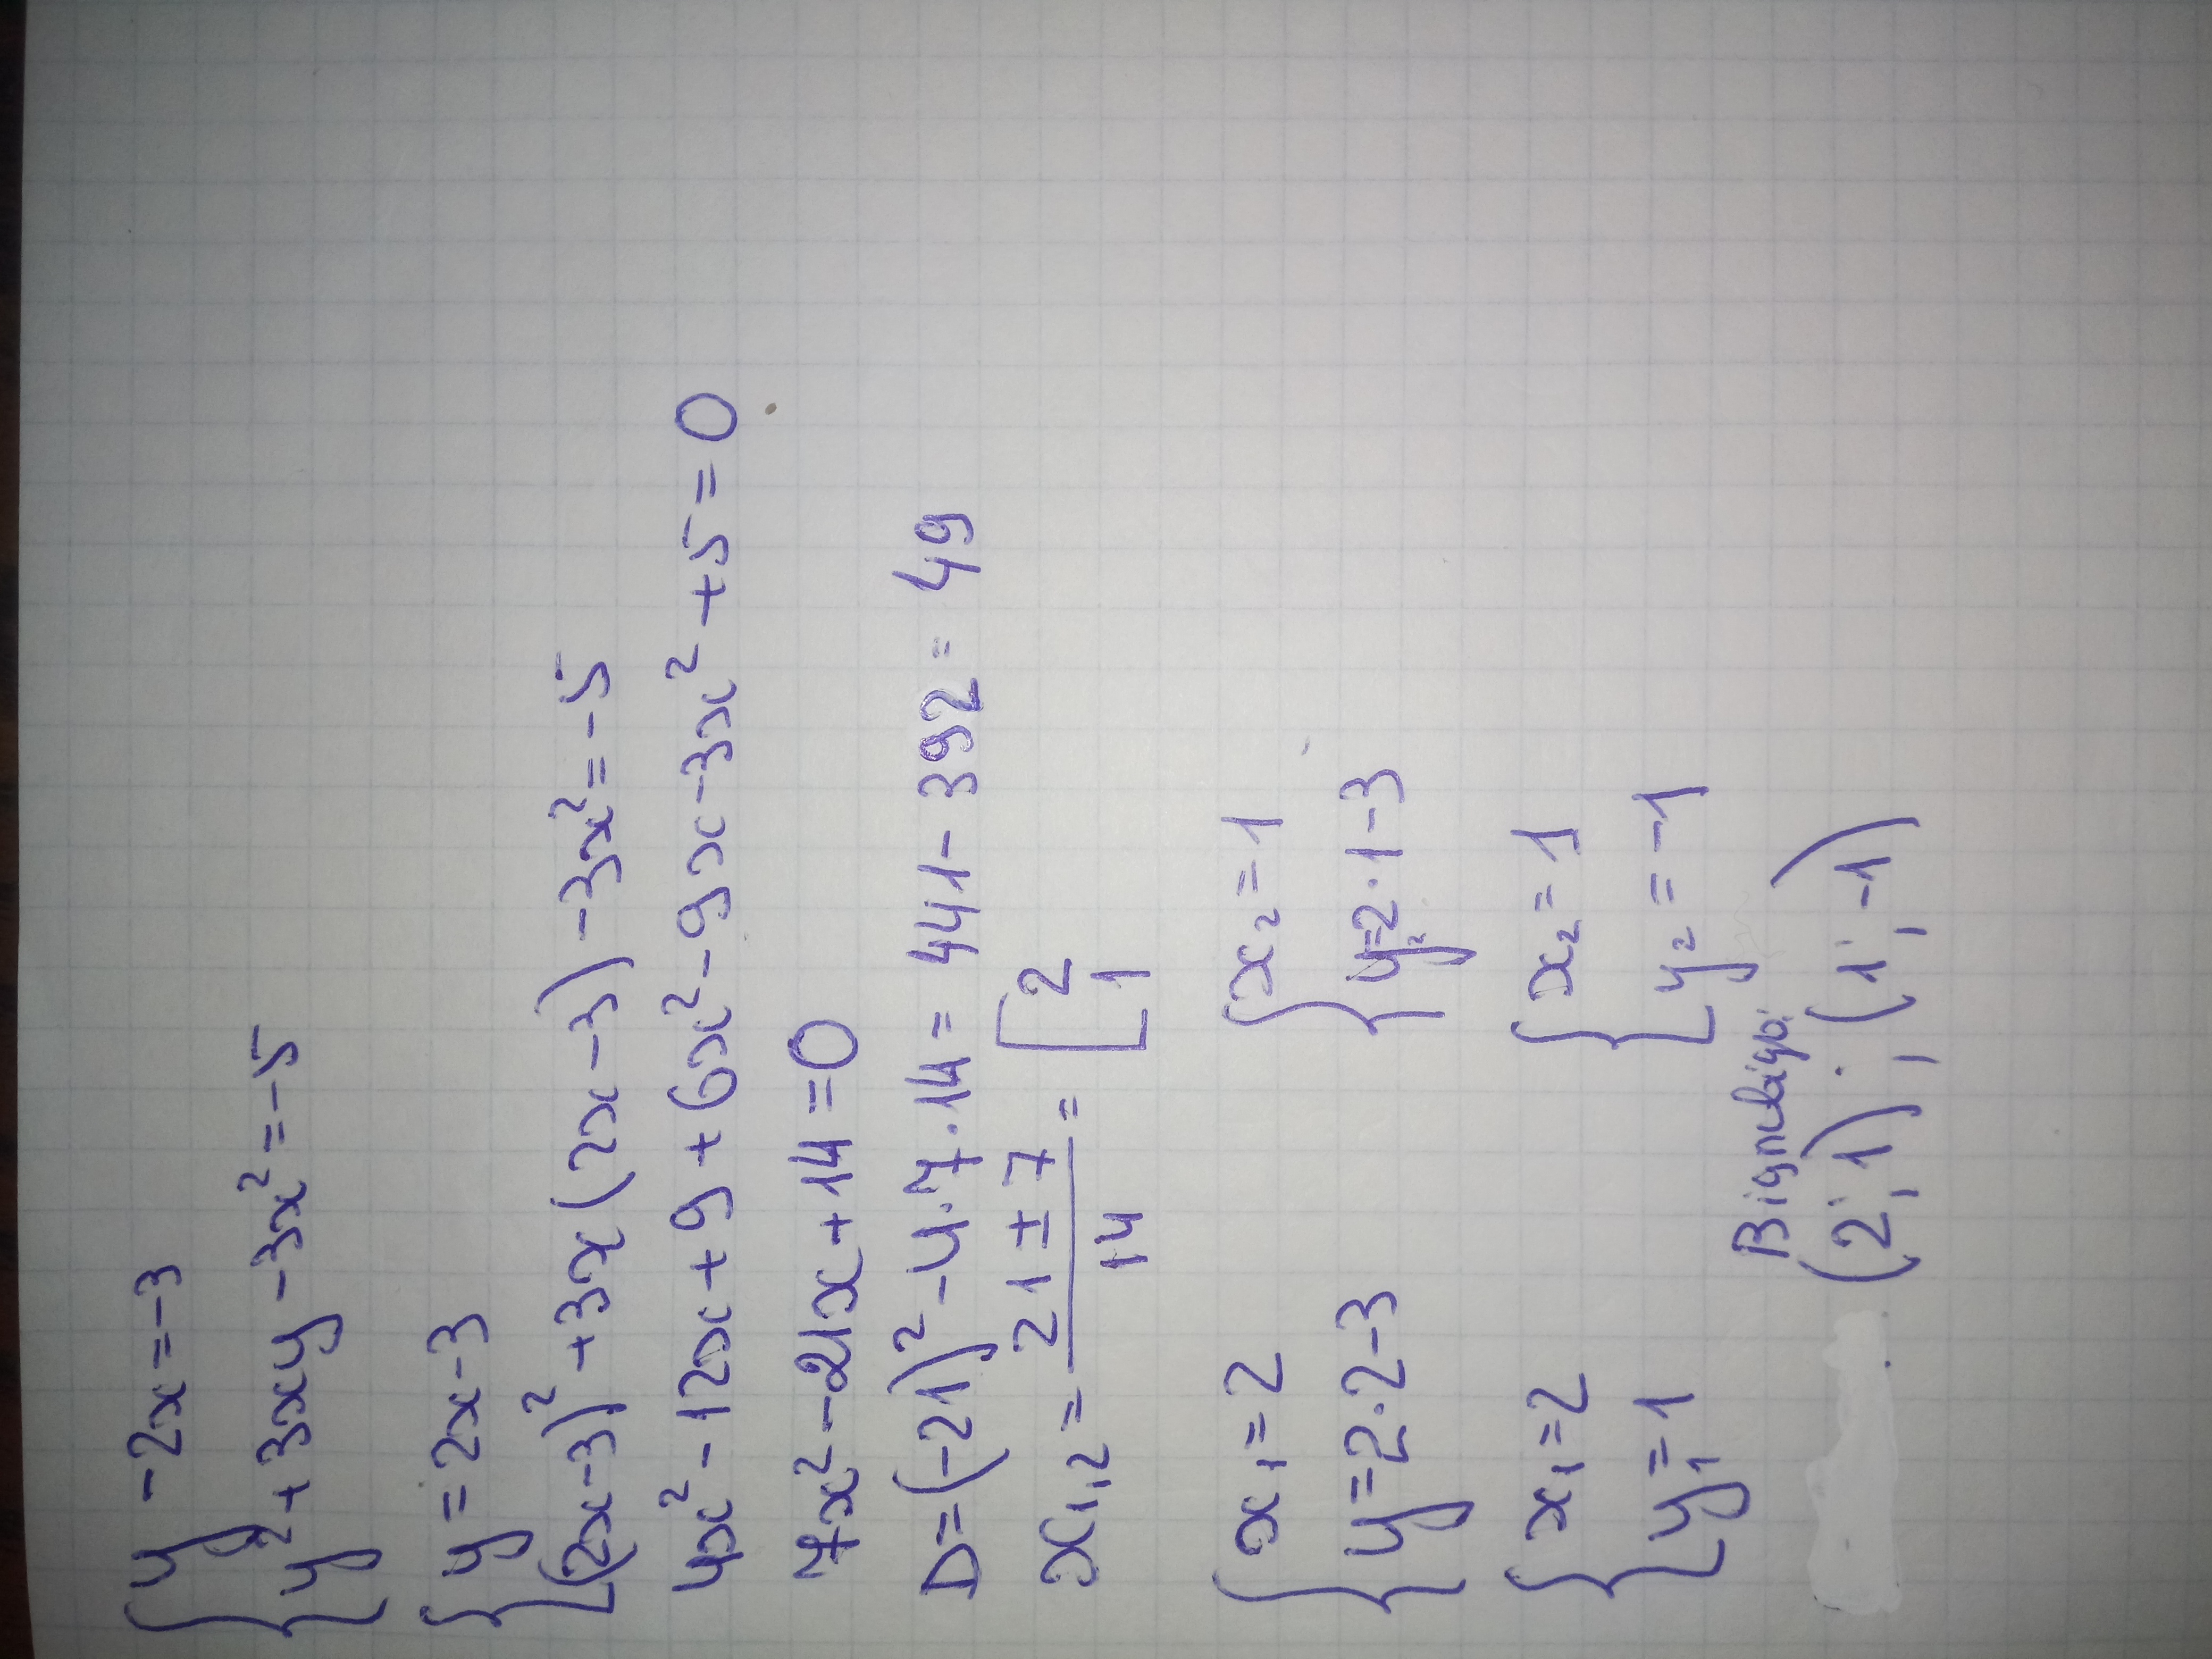 { y - 2x = -3
{ y² + 3xy - 3x² = -5
{ y = 2x - 3
{ (2x-3)² + 3x(2x-3) - 3x² = -5
4x² - 12x + 9 + 6x² - 9x - 3x² + 5 = 0
7x² - 21x + 14 = 0
D = (-21)² - 4·7·14 = 441 - 392 = 49
x₁,₂ = (21 ± 7)/14 = [ 2 1
{ x₁ = 2 { x₂ = 1
{ y = 2·2-3 { y₂ = 2·1-3
{ x₁ = 2 { x₂ = 1
{ y₁ = 1 { y₂ = -1
Відповідь:
(2; 1) ; (1; -1)